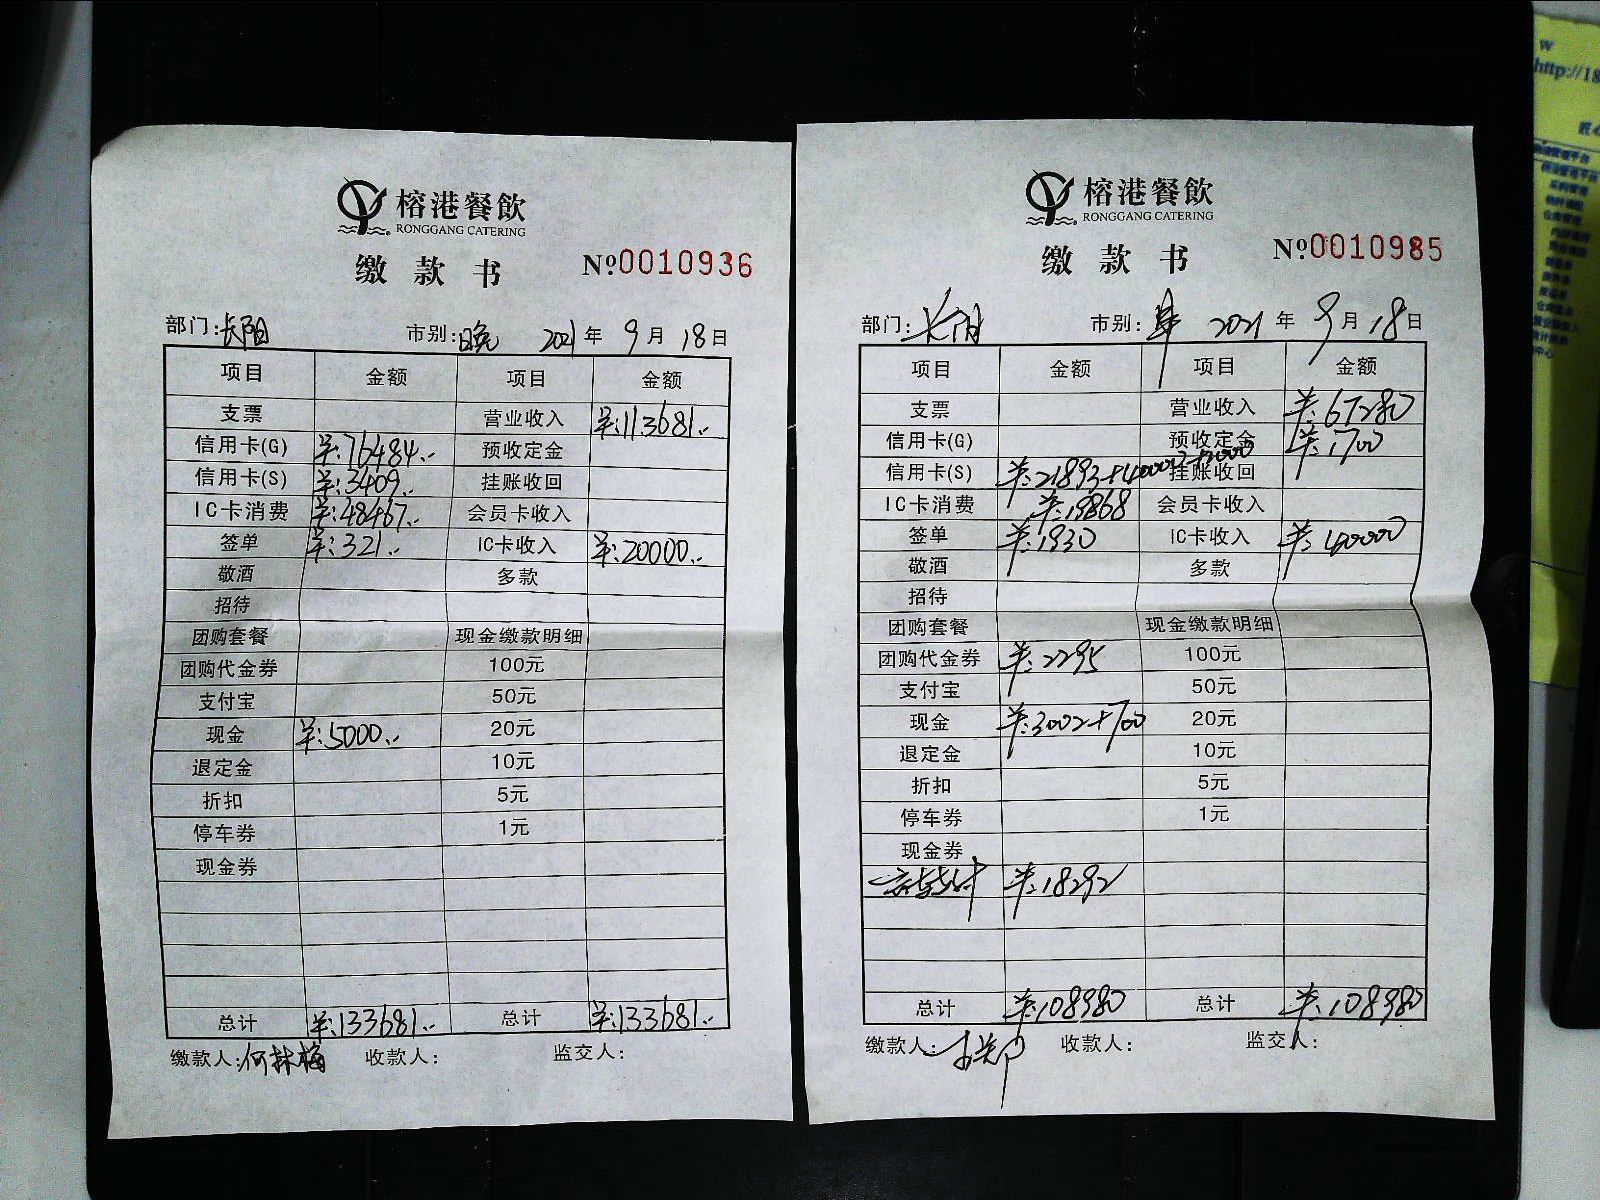 榕港餐飲
RONGGANG CATERING
缴款书 №0010936
部门:长阳 市别:晚 2021年9月18日
项目 金额 项目 金额
支票 营业收入 ¥:113681..
信用卡(G) ¥:76484.. 预收定金
信用卡(S) ¥:3409.. 挂账收回
IC卡消费 ¥:48467.. 会员卡收入
签单 ¥:321.. IC卡收入 ¥:20000..
敬酒 多款
招待
团购套餐 现金缴款明细
团购代金券 100元
支付宝 50元
现金 ¥:5000.. 20元
退定金 10元
折扣 5元
停车券 1元
现金券
总计 ¥:133681.. 总计 ¥:133681..
缴款人:何林梅 收款人: 监交人:
榕港餐飲
RONGGANG CATERING
缴款书 №0010985
部门:长阳 市别: 2021年9月18日
项目 金额 项目 金额
支票 营业收入 ¥:67280
信用卡(G) 预收定金 ¥:1700
信用卡(S) ¥:21893+40000+1000 挂账收回
IC卡消费 ¥:19868 会员卡收入
签单 ¥:1930 IC卡收入 ¥:40000
敬酒 多款
招待
团购套餐 现金缴款明细
团购代金券 ¥:2295 100元
支付宝 50元
现金 ¥:3002+700 20元
退定金 10元
折扣 5元
停车券 1元
现金券
¥:18292
总计 ¥:108980 总计 ¥:108980
缴款人: 收款人: 监交人:
w
http://18